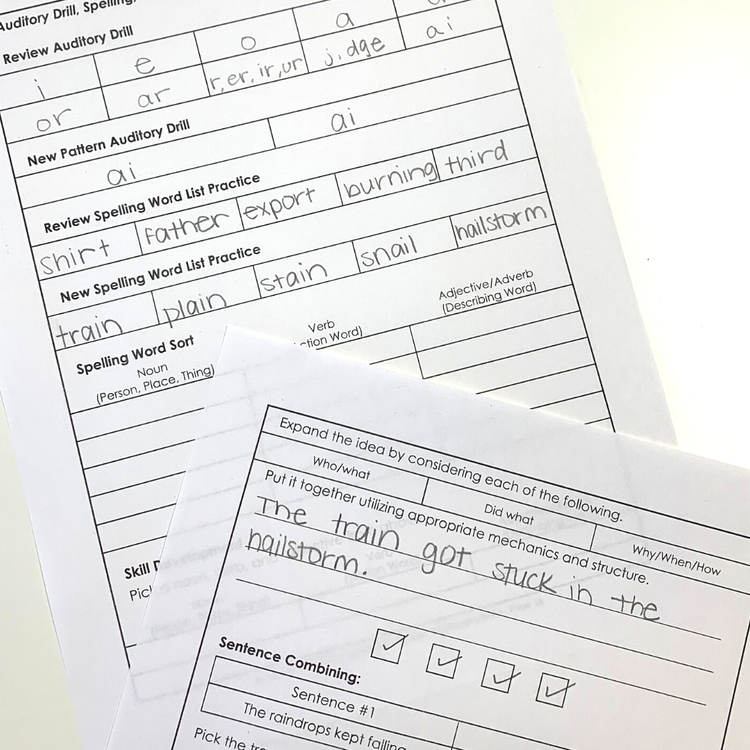 Auditory Drill, Spelling,
Review Auditory Drill
i e o a
or ar r, er, ir, ur j, dge ai
New Pattern Auditory Drill
ai ai
Review Spelling Word List Practice
shirt father export burning third
New Spelling Word List Practice
train plain stain snail hailstorm
Spelling Word Sort
Noun
(Person, Place, Thing)
Verb
Word)
Adjective/Adverb
(Describing Word)
Skill
Expand the idea by considering each of the following.
Who/what Did what Why/When/How
Put it together utilizing appropriate mechanics and structure.
The train got stuck in the
hailstorm.
Sentence Combining:
Sentence #1
The raindrops kept falling
Pick the